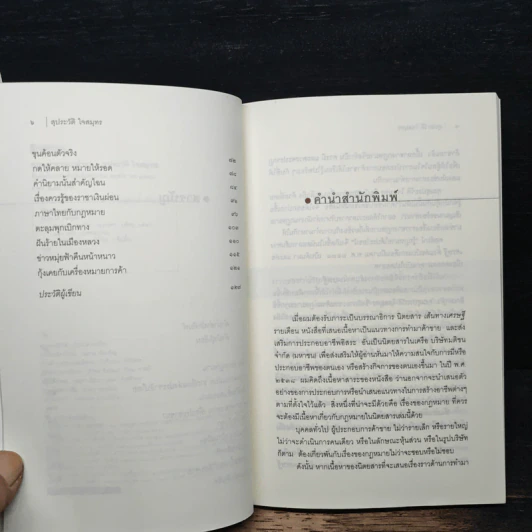 ๖ | สุประวัติ ใจสมุทร
ขุนค้อนตัวจริง ๗๒
กดให้คลาย หมายให้รอด
คำนิยามนั้นสำคัญไฉน
เรื่องควรรู้ของราชาเงินผ่อน
ภาษาไทยกับกฎหมาย
ตะลุมพุกเบิกทาง
ปืนร้ายในเมืองหลวง
ข่าวหมุ่ยฟ้าคืนหน้าหนาว
กุ้งเคยกับเครื่องหมายการค้า
ประวัติผู้เขียน
คำนำสำนักพิมพ์
เมื่อผมต้องรับภาระเป็นบรรณาธิการ นิตยสาร เส้นทางเศรษฐี
รายเดือน หนังสือที่เสนอเนื้อหาเป็นแนวทางการทำมาค้าขาย และส่ง
เสริมการประกอบอาชีพอิสระ อันเป็นนิตยสารในเครือ บริษัทมติชน
จำกัด (มหาชน) เพื่อส่งเสริมให้ผู้อ่านหันมาให้ความสนใจกับการมีหรือ
ประกอบอาชีพของตนเอง หรือสร้างกิจการของตนเองขึ้นมา ในปี พ.ศ.
๒๕๓๘ ผมคิดถึงเนื้อหาสาระของหนังสือ ว่านอกจากจะนำเสนอตัว
อย่างของการประกอบการหรือนำเสนอแนวทางในการสร้างอาชีพต่างๆ
ตามที่ตั้งใจไว้แล้ว สิ่งหนึ่งที่น่าจะมีด้วยคือ เรื่องของกฎหมาย ที่ควร
จะต้องมีเนื้อหาเกี่ยวกับกฎหมายในนิตยสารเล่มนี้ด้วย
บุคคลทั่วไป ผู้ประกอบการค้าขาย ไม่ว่ารายเล็ก หรือรายใหญ่
ไม่ว่าจะดำเนินการคนเดียว หรือในลักษณะหุ้นส่วน หรือในรูปบริษัท
ก็ตาม ต้องเกี่ยวพันกับเรื่องของกฎหมายไม่ว่าจะชอบหรือไม่ชอบ
ดังนั้น หากเนื้อหาของนิตยสารที่จะเสนอเรื่องราวด้านการทำมา